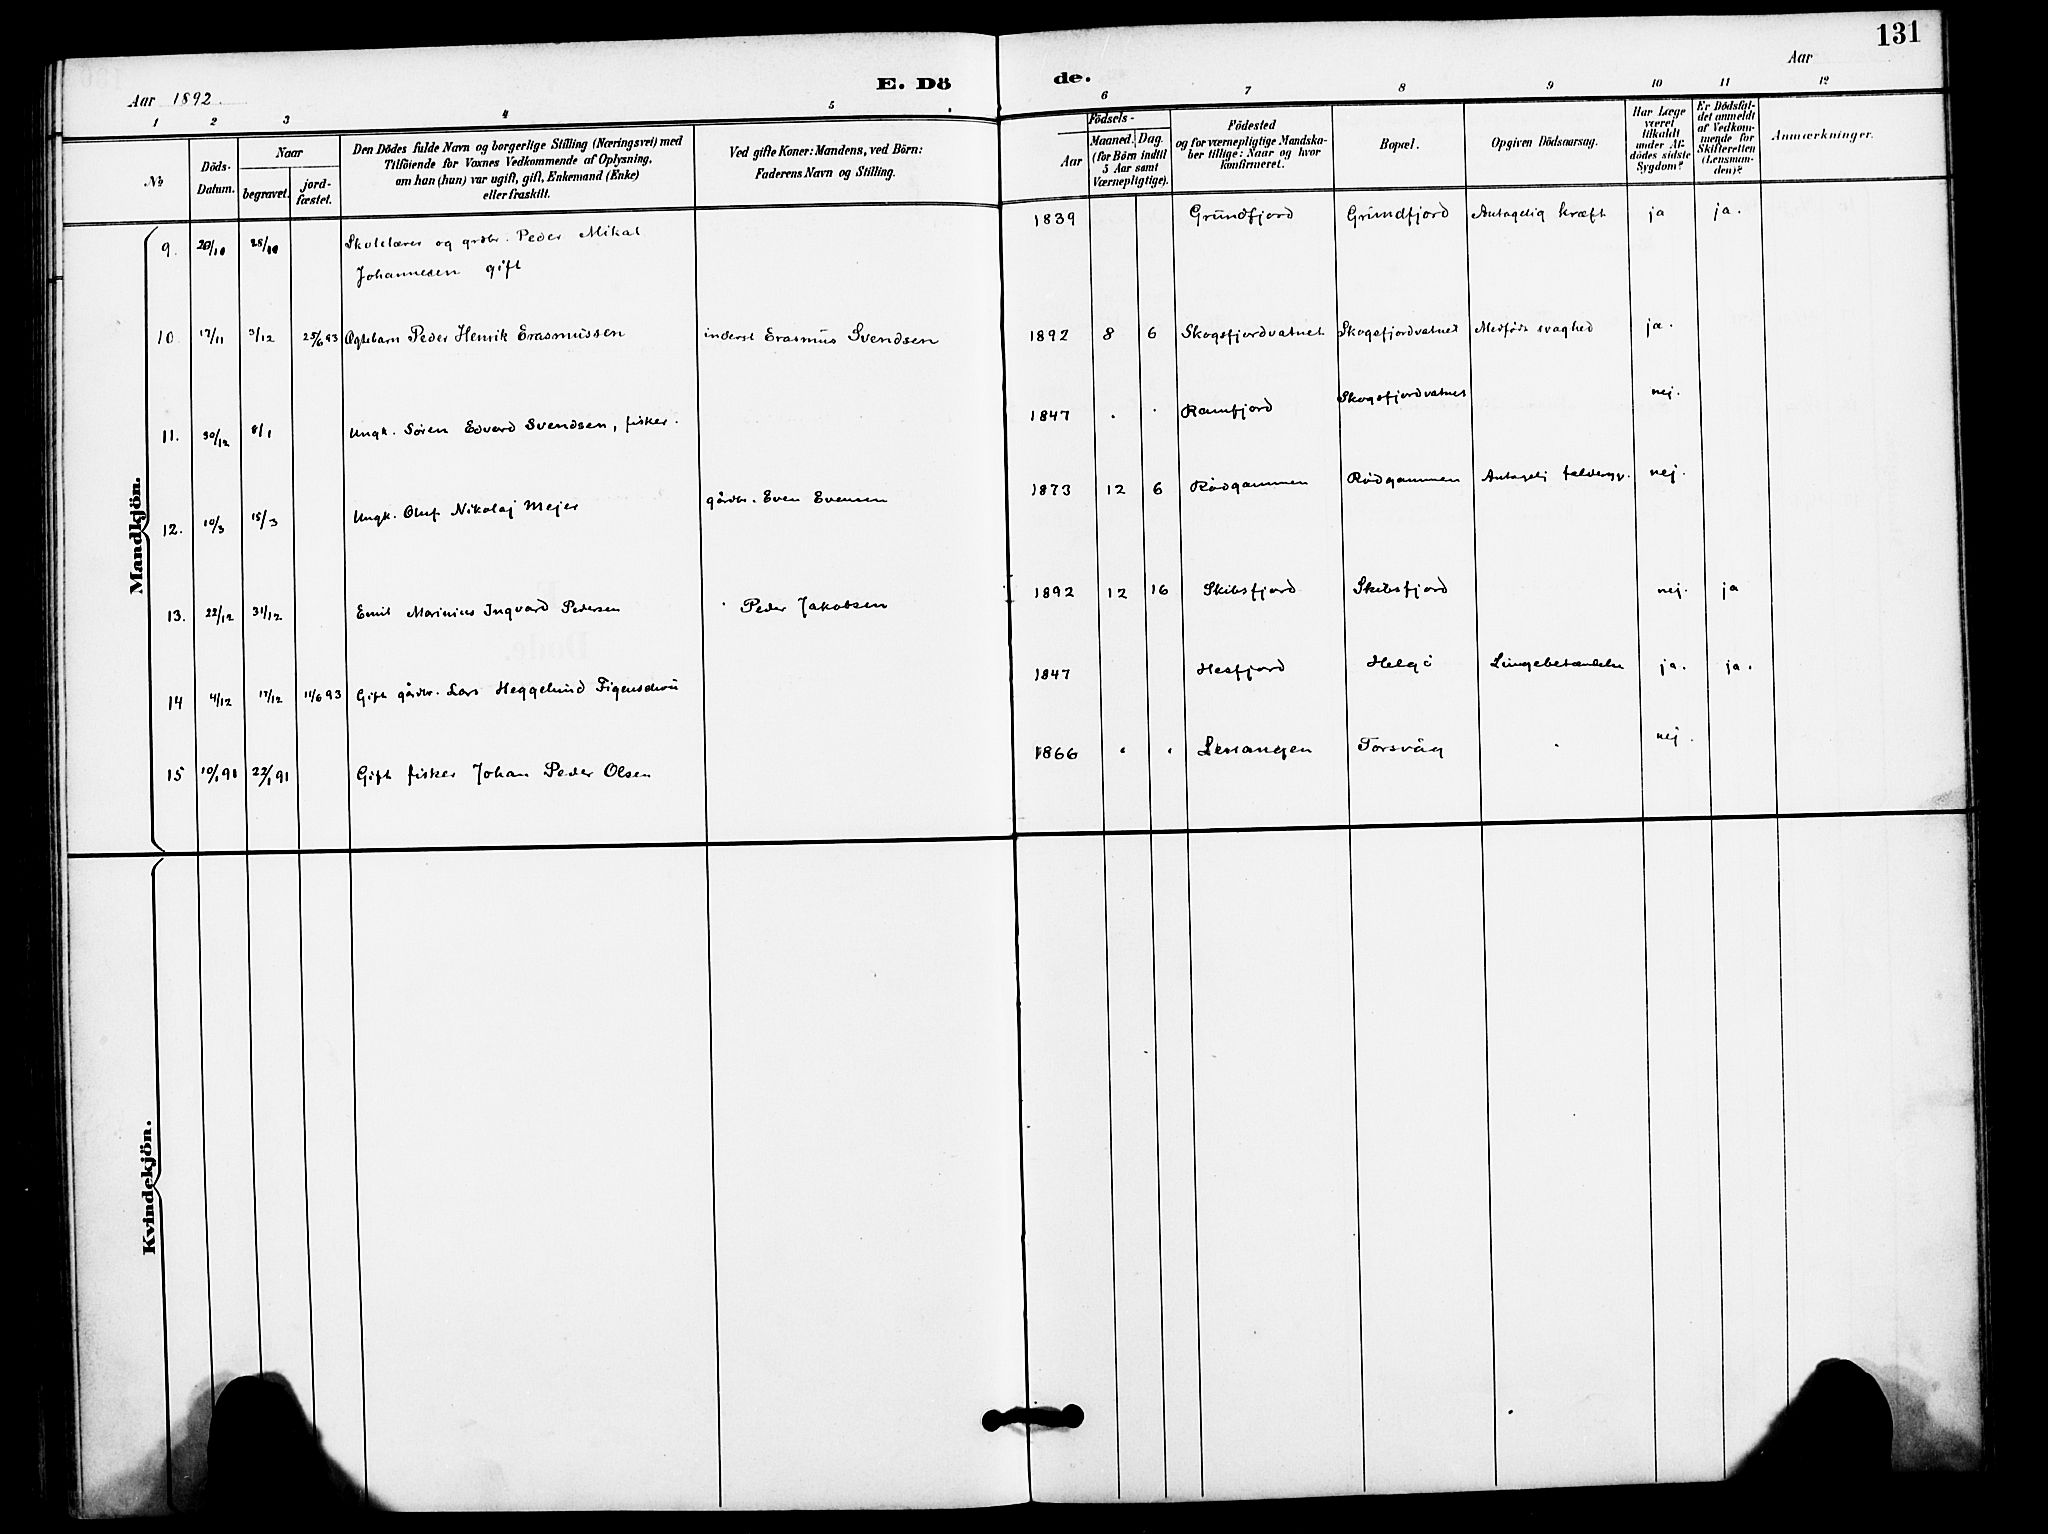 131
Aar 1892.
E. Döde.
Aar
1 2 3 4 5 6 7 8 9 10 11 12
No
Döds-Datum.
Naar
begravet.
jord-fæstet.
Den Dödes fulde Navn og borgerlige Stilling (Næringsvei) med
Tilföiende for Voxnes Vedkommende af Oplysning,
om han (hun) var ugift, gift, Enkemand (Enke)
eller fraskilt.
Ved gifte Koner: Mandens, ved Börn:
Faderens Navn og Stilling.
Födsels-
Aar
Maaned. Dag.
(for Börn indtil
5 Aar samt
Værnepligtige).
Födested
og for værnepligtige Mandska-
ber tillige: Naar og hvor
konfirmeret.
Bopæl.
Opgiven Dödsaarsag.
Har Læge
været
tilkaldt
under Af-
dödes sidste
Sygdom?
Er Dödsfal-
det anmeldt
af Vedkom-
mende for
Skifteretten
(Lensman-
den)?
Anmærkninger.
Mandkjön.
9. 20/10 28/10 Skolelærer og grdbr. Peder Mikal
Johannesen gift
1839 Grundfjord Grundfjord Antagelig kræft ja ja.
10 17/11 3/12 25/6 93 Ægtebarn Peder Henrik Erasmussen inderst Erasmus Svendsen 1892 8 6 Skogsfjordvatnet Skogsfjordvatnet Medfødt svaghed ja.
11. 30/12 8/1 Ungk. Søren Edvard Svendsen, fisker. 1847 Ramfjord Skogsfjordvatnet nej.
12. 10/3 15/3 Ungk. Oluf Nikolaj Mejer gårdbr. Even Evensen 1873 12 6 Rødgammen Rødgammen Antagelig nej.
13. 22/12 31/12 Emil Marinius Ingvard Pedersen Peder Jakobsen 1892 12 16 Skibsfjord Skibsfjord nej. ja
14 4/12 17/12 11/6 93 Gift gårdbr. Lars Heggelund Figenschou 1847 Hesfjord Helgö Lungebetændelse ja. ja.
15 10/1 91 22/1 91 Gift fisker Johan Peder Olsen 1866 Torsvåg nej.
Kvindekjön.